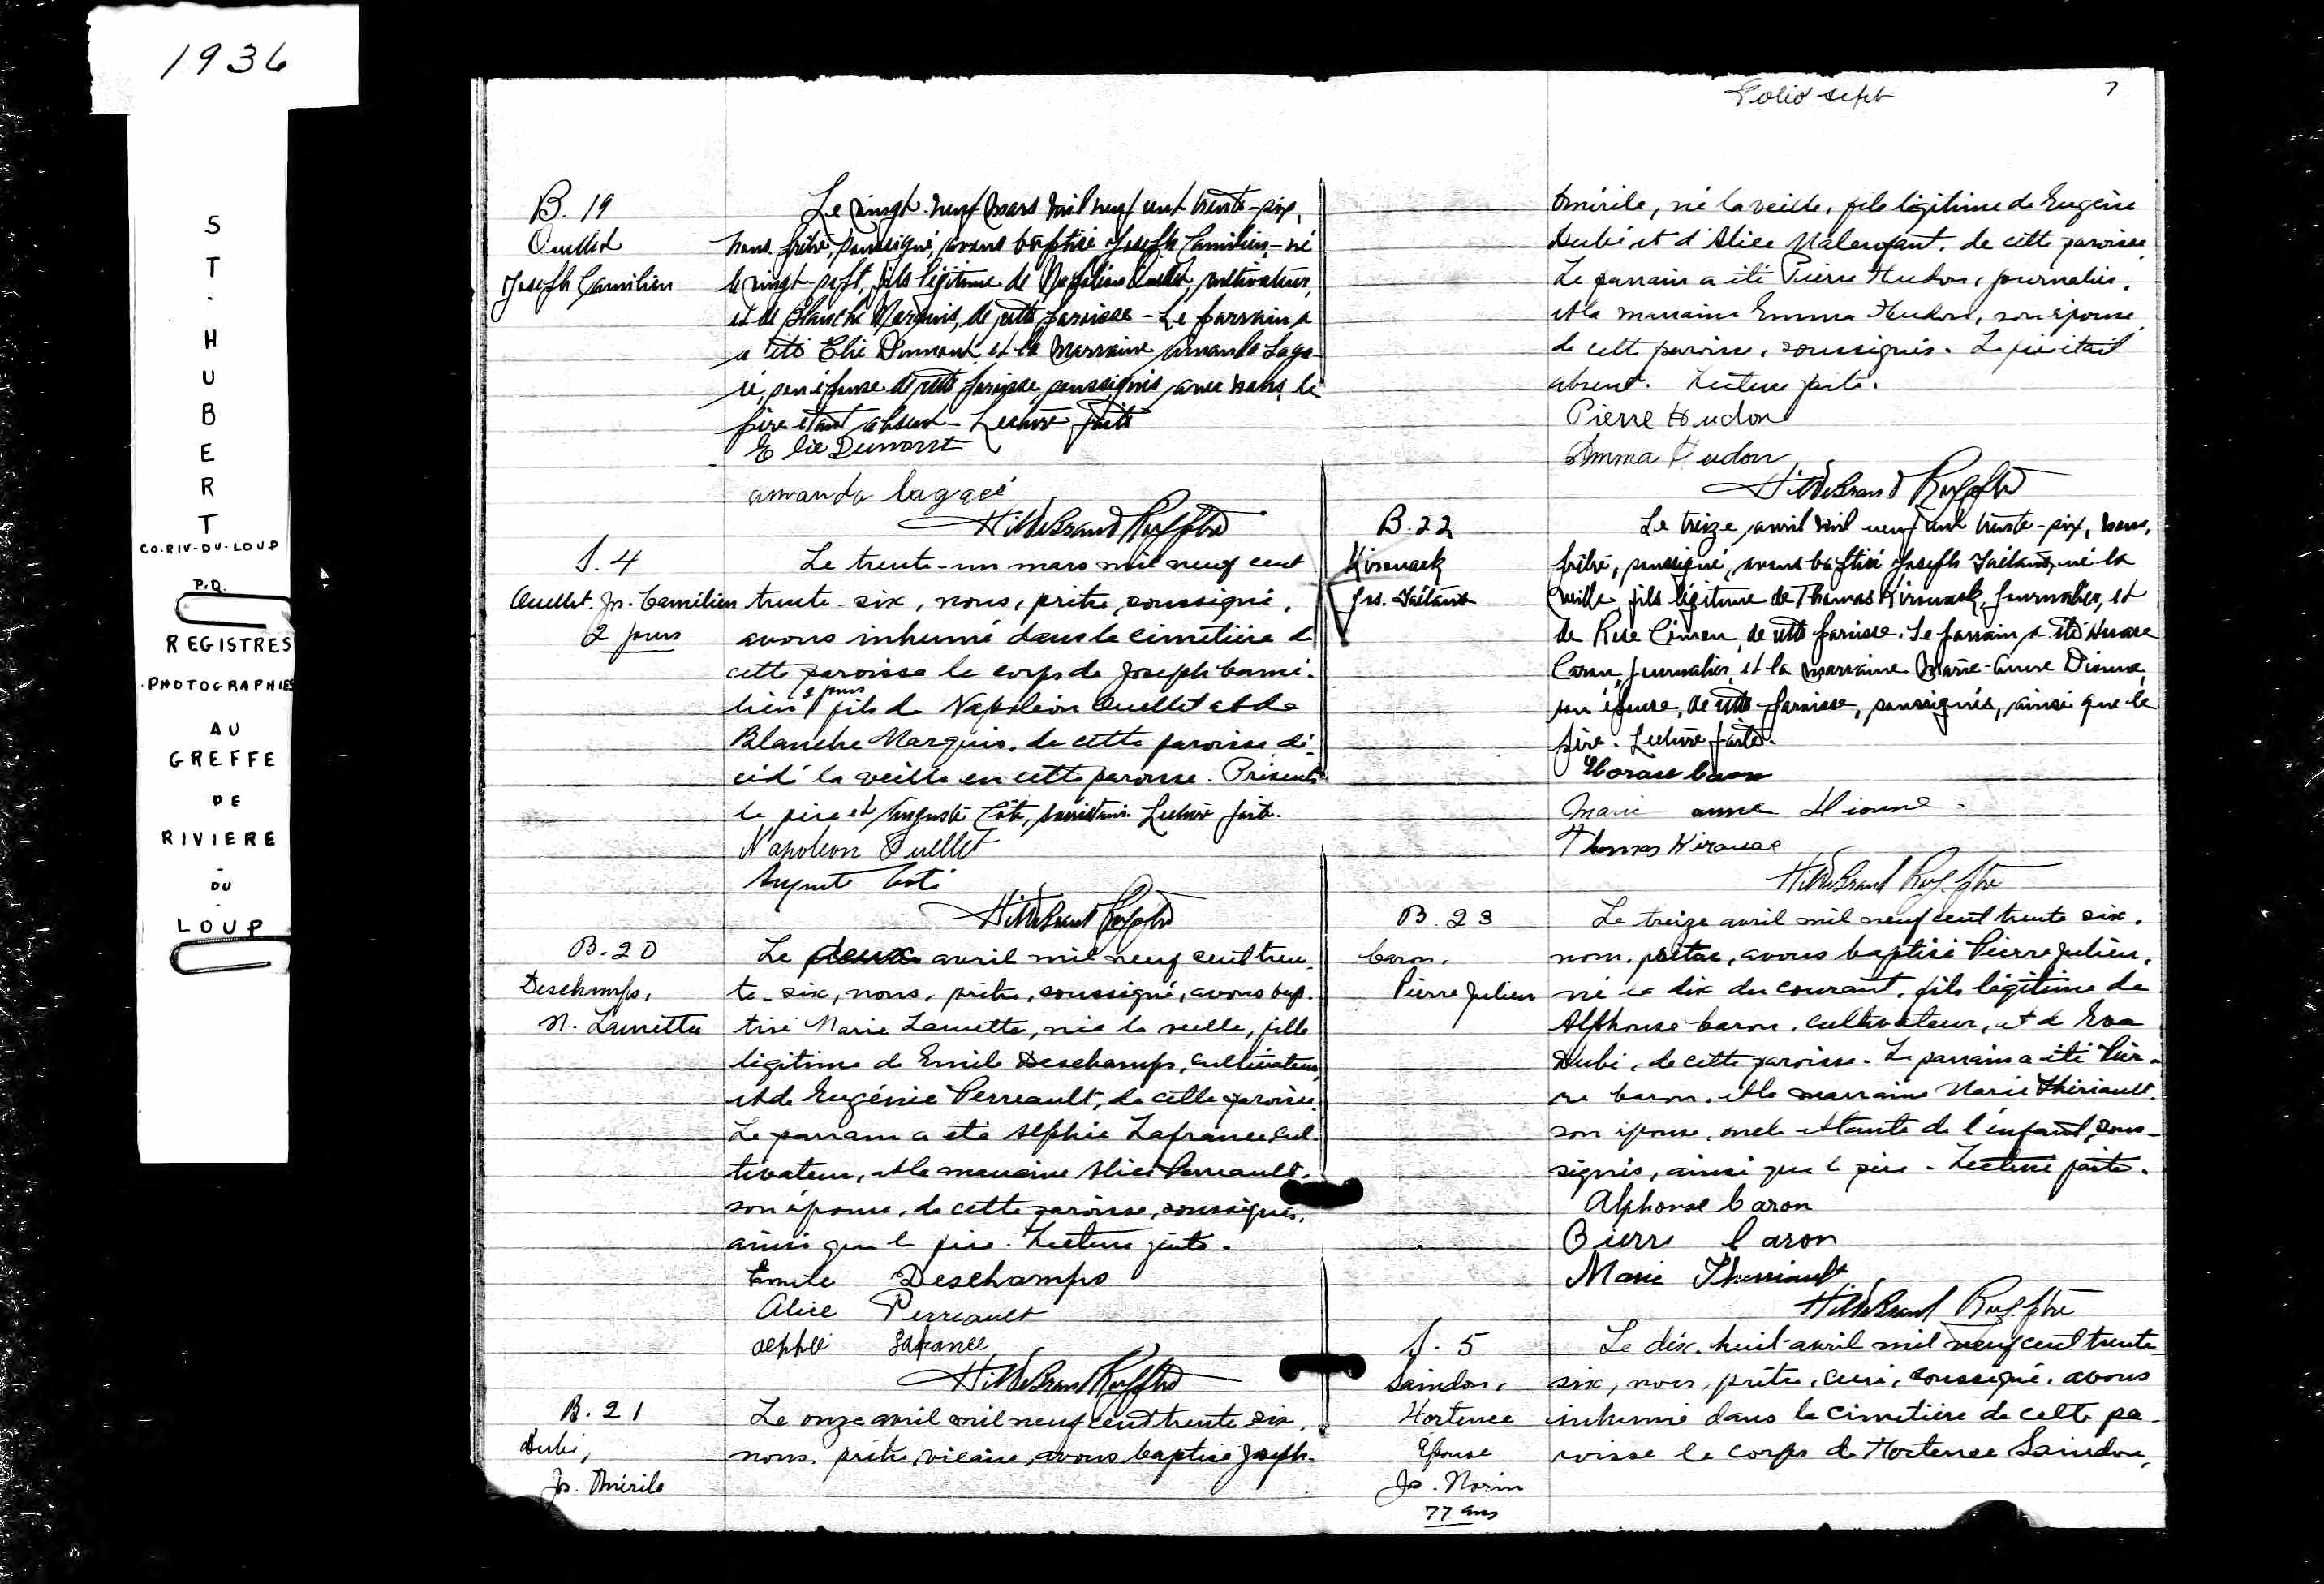 1936
ST. HUBERT
CO. RIV-DU-LOUP
P.Q.
REGISTRES
PHOTOGRAPHIES
AU
GREFFE
DE
RIVIERE
-
DU
-
LOUP
B. 19
Ouellet
Joseph Camilien
Le vingt-neuf mars mil neuf cent trente-six,
nous, prêtre, soussigné, avons baptisé Joseph Camilien, né
le vingt-sept, fils légitime de Napoléon Ouellet, cultivateur,
et de Blanche Marquis, de cette paroisse - Le parrain a
a été Elie Dumont et la marraine Amanda Laga-
cé, son épouse de cette paroisse, soussignés avec nous, le
père étant absent - Lecture faite
Elie Dumont
amanda lagacé
Hildebrand Roy, ptre
S. 4
Ouellet. Js. Camilien
2 jours
Le trente-un mars mil neuf cent
trente-six, nous, prêtre, soussigné,
avons inhumé dans le cimetière de
cette paroisse le corps de Joseph Cami-
lien 2 jours fils de Napoléon Ouellet et de
Blanche Marquis, de cette paroisse dé-
cédé la veille en cette paroisse. Présents
le père et Auguste Côté, sacristain. Lecture faite.
Napoléon Ouellet
August Coté
Hildebrand Roy, ptre
B. 20
Deschamps,
M. Laurette
Le deux avril mil neuf cent tren-
te-six, nous, prêtre, soussigné, avons bap-
tisé Marie Laurette, née la veille, fille
légitime de Emile Deschamps, cultivateur,
et de Eugénie Perreault, de cette paroisse.
Le parrain a été Alphée Lafrance cul-
tivateur, et la marraine Alice Perreault,
son épouse, de cette paroisse, soussignés,
ainsi que le père. Lecture faite.
Emile Deschamps
Alice Perreault
alphé lafrance
Hildebrand Roy, ptre
B. 21
Dubé,
Js. Émérile
Le onze avril mil neuf cent trente six,
nous, prêtre, vicaire, avons baptisé Joseph-
Folio sept
7
Émérile, né la veille, fils légitime de Eugène
Dubé et d'Alice Malenfant, de cette paroisse.
Le parrain a été Pierre Hudon, journalier,
et la marraine Emma Hudon, son épouse,
de cette paroisse, soussignés. Le père était
absent. Lecture faite.
Pierre Hudon
Emma Hudon
Hildebrand Roy, ptre
B. 22
Kirouack
Jos. Gaétan
Le treize avril mil neuf cent trente-six, nous,
prêtre, soussigné, avons baptisé Joseph Gaétan, né la
veille, fils légitime de Thomas Kirouack, journalier, et
de Rose Cimon, de cette paroisse. Le parrain a été Horace
Caron, journalier, et la marraine Marie-Anne Dionne,
son épouse, de cette paroisse, soussignés, ainsi que le
père. Lecture faite.
Horace Caron
Marie anne Dionne
Thomas Kirouac
Hildebrand Roy, ptre
B. 23
Caron.
Pierre Julien
Le treize avril mil neuf cent trente six,
nous, prêtre, avons baptisé Pierre Julien,
né le dix du courant, fils légitime de
Alphonse Caron, cultivateur, et de Eva
Dubé, de cette paroisse. Le parrain a été Pier-
re Caron, et la marraine Marie Thériault,
son épouse, oncle et tante de l'enfant, sous-
signés, ainsi que le père - Lecture faite.
Alphonse Caron
Pierre Caron
Marie Therriault
Hildebrand Roy, ptre
S. 5
Saindon,
Hortence
Epouse
Js. Morin
77 ans
Le dix-huit avril mil neuf cent trente
six, nous, prêtre, curé, soussigné, avons
inhumé dans le cimetière de cette pa-
roisse le corps de Hortence Saindon,